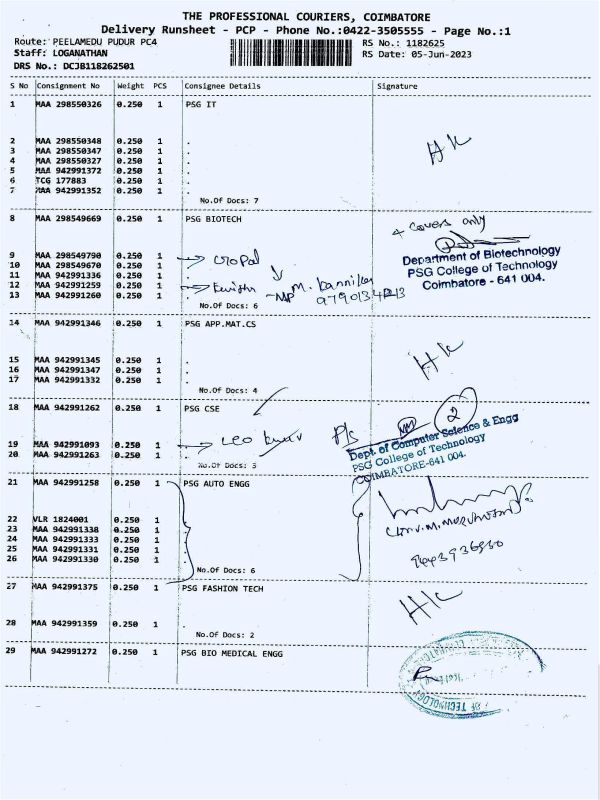 THE PROFESSIONAL COURIERS, COIMBATORE
Delivery Runsheet - PCP - Phone No.:0422-3505555 - Page No.:1
Route: PEELAMEDU PUDUR PC4 RS No.: 1182625
Staff: LOGANATHAN RS Date: 05-Jun-2023
DRS No.: DCJB118262501
S No Consignment No Weight PCS Consignee Details Signature
1 MAA 298550326 0.250 1 PSG IT
2 MAA 298550348 0.250 1 .
3 MAA 298550347 0.250 1 .
4 MAA 298550327 0.250 1 .
5 MAA 942991372 0.250 1 .
6 TCG 177883 0.250 1 .
7 MAA 942991352 0.250 1 .
No.Of Docs: 7
8 MAA 298549669 0.250 1 PSG BIOTECH
4 covers only
9 MAA 298549790 0.250 1
10 MAA 298549670 0.250 1
11 MAA 942991336 0.250 1
12 MAA 942991259 0.250 1
13 MAA 942991260 0.250 1 .
No.Of Docs: 6
Department of Biotechnology
PSG College of Technology
Coimbatore - 641 004.
14 MAA 942991346 0.250 1 PSG APP.MAT.CS
15 MAA 942991345 0.250 1 .
16 MAA 942991347 0.250 1 .
17 MAA 942991332 0.250 1 .
No.Of Docs: 4
18 MAA 942991262 0.250 1 PSG CSE
2
19 MAA 942991093 0.250 1
20 MAA 942991263 0.250 1 .
No.Of Docs: 3
Dept. of Computer Science & Engg
PSG College of Technology
COIMBATORE-641 004.
21 MAA 942991258 0.250 1 PSG AUTO ENGG
22 VLR 1824001 0.250 1 .
23 MAA 942991338 0.250 1 .
24 MAA 942991333 0.250 1 .
25 MAA 942991331 0.250 1 .
26 MAA 942991330 0.250 1 .
No.Of Docs: 6
27 MAA 942991375 0.250 1 PSG FASHION TECH
28 MAA 942991359 0.250 1 .
No.Of Docs: 2
29 MAA 942991272 0.250 1 PSG BIO MEDICAL ENGG
OF TECHNOLOGY